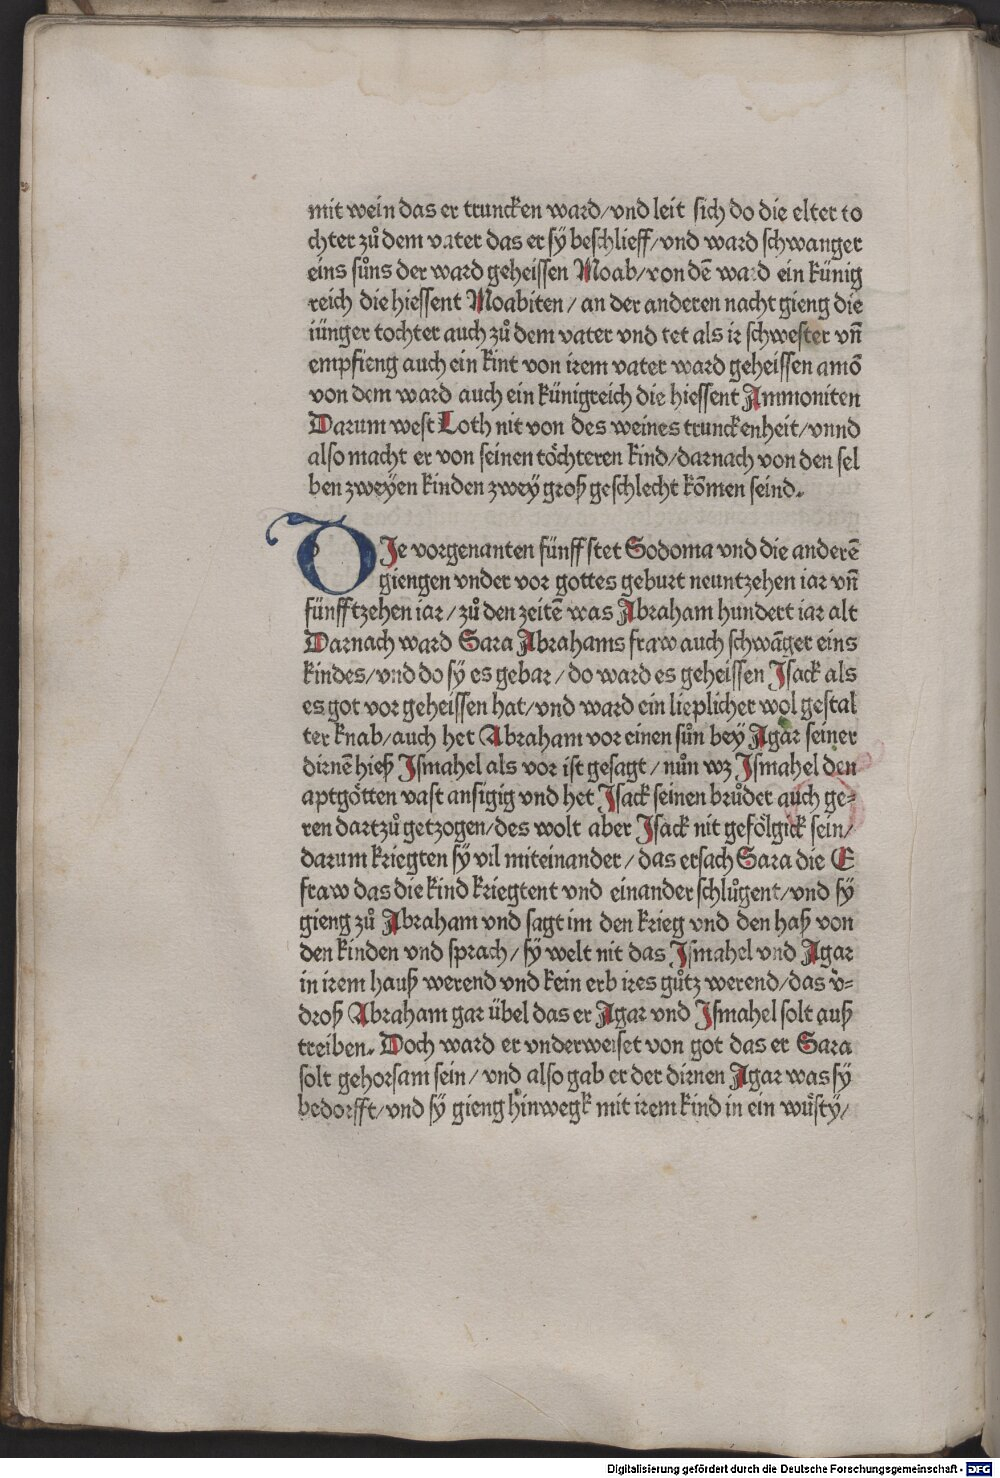 mit wein das er truncken ward/vnd leit sich do die elter to
chter zuͦ dem vater das er sÿ beschlieff/vnd ward schwanger
eins suͦns der ward geheissen Moab/von dē ward ein künig
reich die hiessent Moabiten/an der anderen nacht gieng die
iünger tochter auch zuͦ dem vater vnd tet als ir schwester vn̄
empfieng auch ein kint von irem vater ward geheissen amō
von dem ward auch ein künigreich die hiessent Ammoniten
Darum west Loth nit von des weines trunckenheit/vnnd
also macht er von seinen töchteren kind/darnach von den sel
ben zweÿen kinden zweÿ groß geschlecht kōmen seind.
DIe vorgenanten fünff stet Sodoma vnd die anderē
giengen vnder vor gottes geburt neuntzehen iar vn̄
fünfftzehen iar/zuͦ den zeitē was Abraham hundert iar alt
Darnach ward Sara Abrahams fraw auch schwāger eins
kindes/vnd do sÿ es gebar/do ward es geheissen Isack als
es got vor geheissen hat/vnd ward ein lieplicher wol gestal
ter knab/auch het Abraham vor einen suͦn beÿ Agar seiner
dirnē hieß Ismahel als vor ist gesagt/nuͦn wz Ismahel den
aptgötten vast ansigig vnd het Isack seinen bruͦder auch ge-
ren dartzuͦ getzogen/des wolt aber Isack nit gefölgick sein/
darum kriegten sÿ vil miteinander/das ersach Sara die E
fraw das die kind kriegtent vnd einander schluͦgent/vnd sÿ
gieng zuͦ Abraham vnd sagt im den krieg vnd den haß von
den kinden vnd sprach/sÿ welt nit das Ismahel vnd Agar
in irem hauß werend vnd kein erb ires guͦtz werend/das v̄-
droß Abraham gar übel das er Agar vnd Ismahel solt auß
treiben. Doch ward er vnderweiset von got das er Sara
solt gehorsam sein/vnd also gab er der dirnen Agar was sÿ
bedorfft/vnd sÿ gieng hinwegk mit irem kind in ein wuͤstÿ/
Digitalisierung gefördert durch die Deutsche Forschungsgemeinschaft - DFG